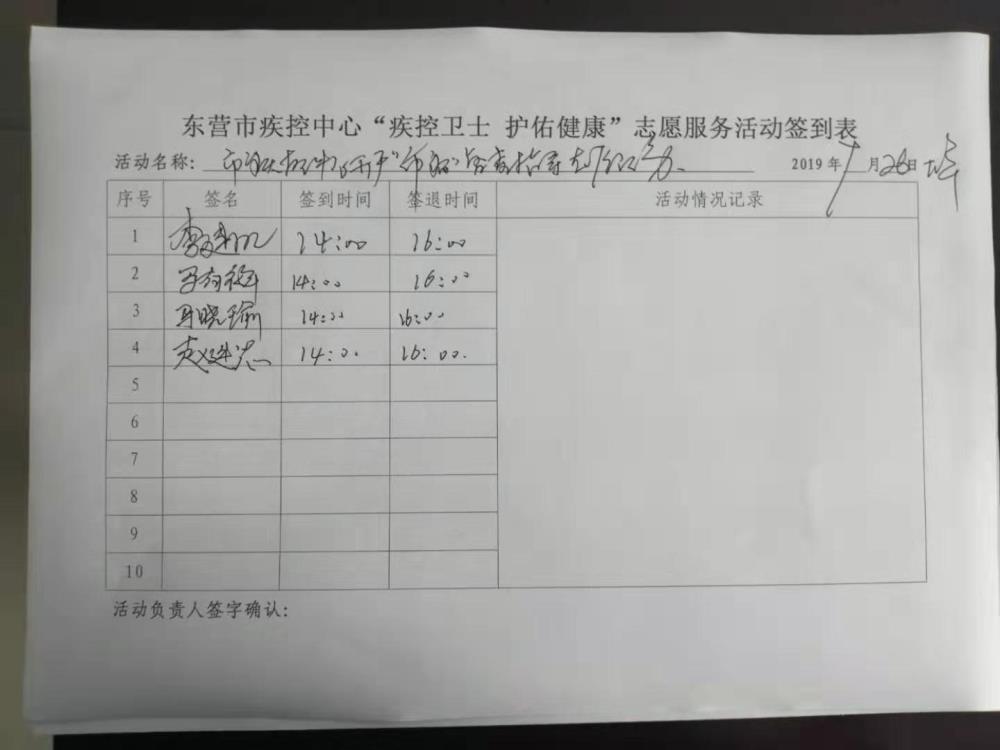 东营市疾控中心“疾控卫士 护佑健康”志愿服务活动签到表
活动名称: 市疾控中心开展 2019年 月26日
序号 签名 签到时间 签退时间 活动情况记录
1 14:00 16:00
2 14:00 16:00
3 马晓瑜 14:00 16:00
4 赵建忠 14:00 16:00.
5
6
7
8
9
10
活动负责人签字确认: